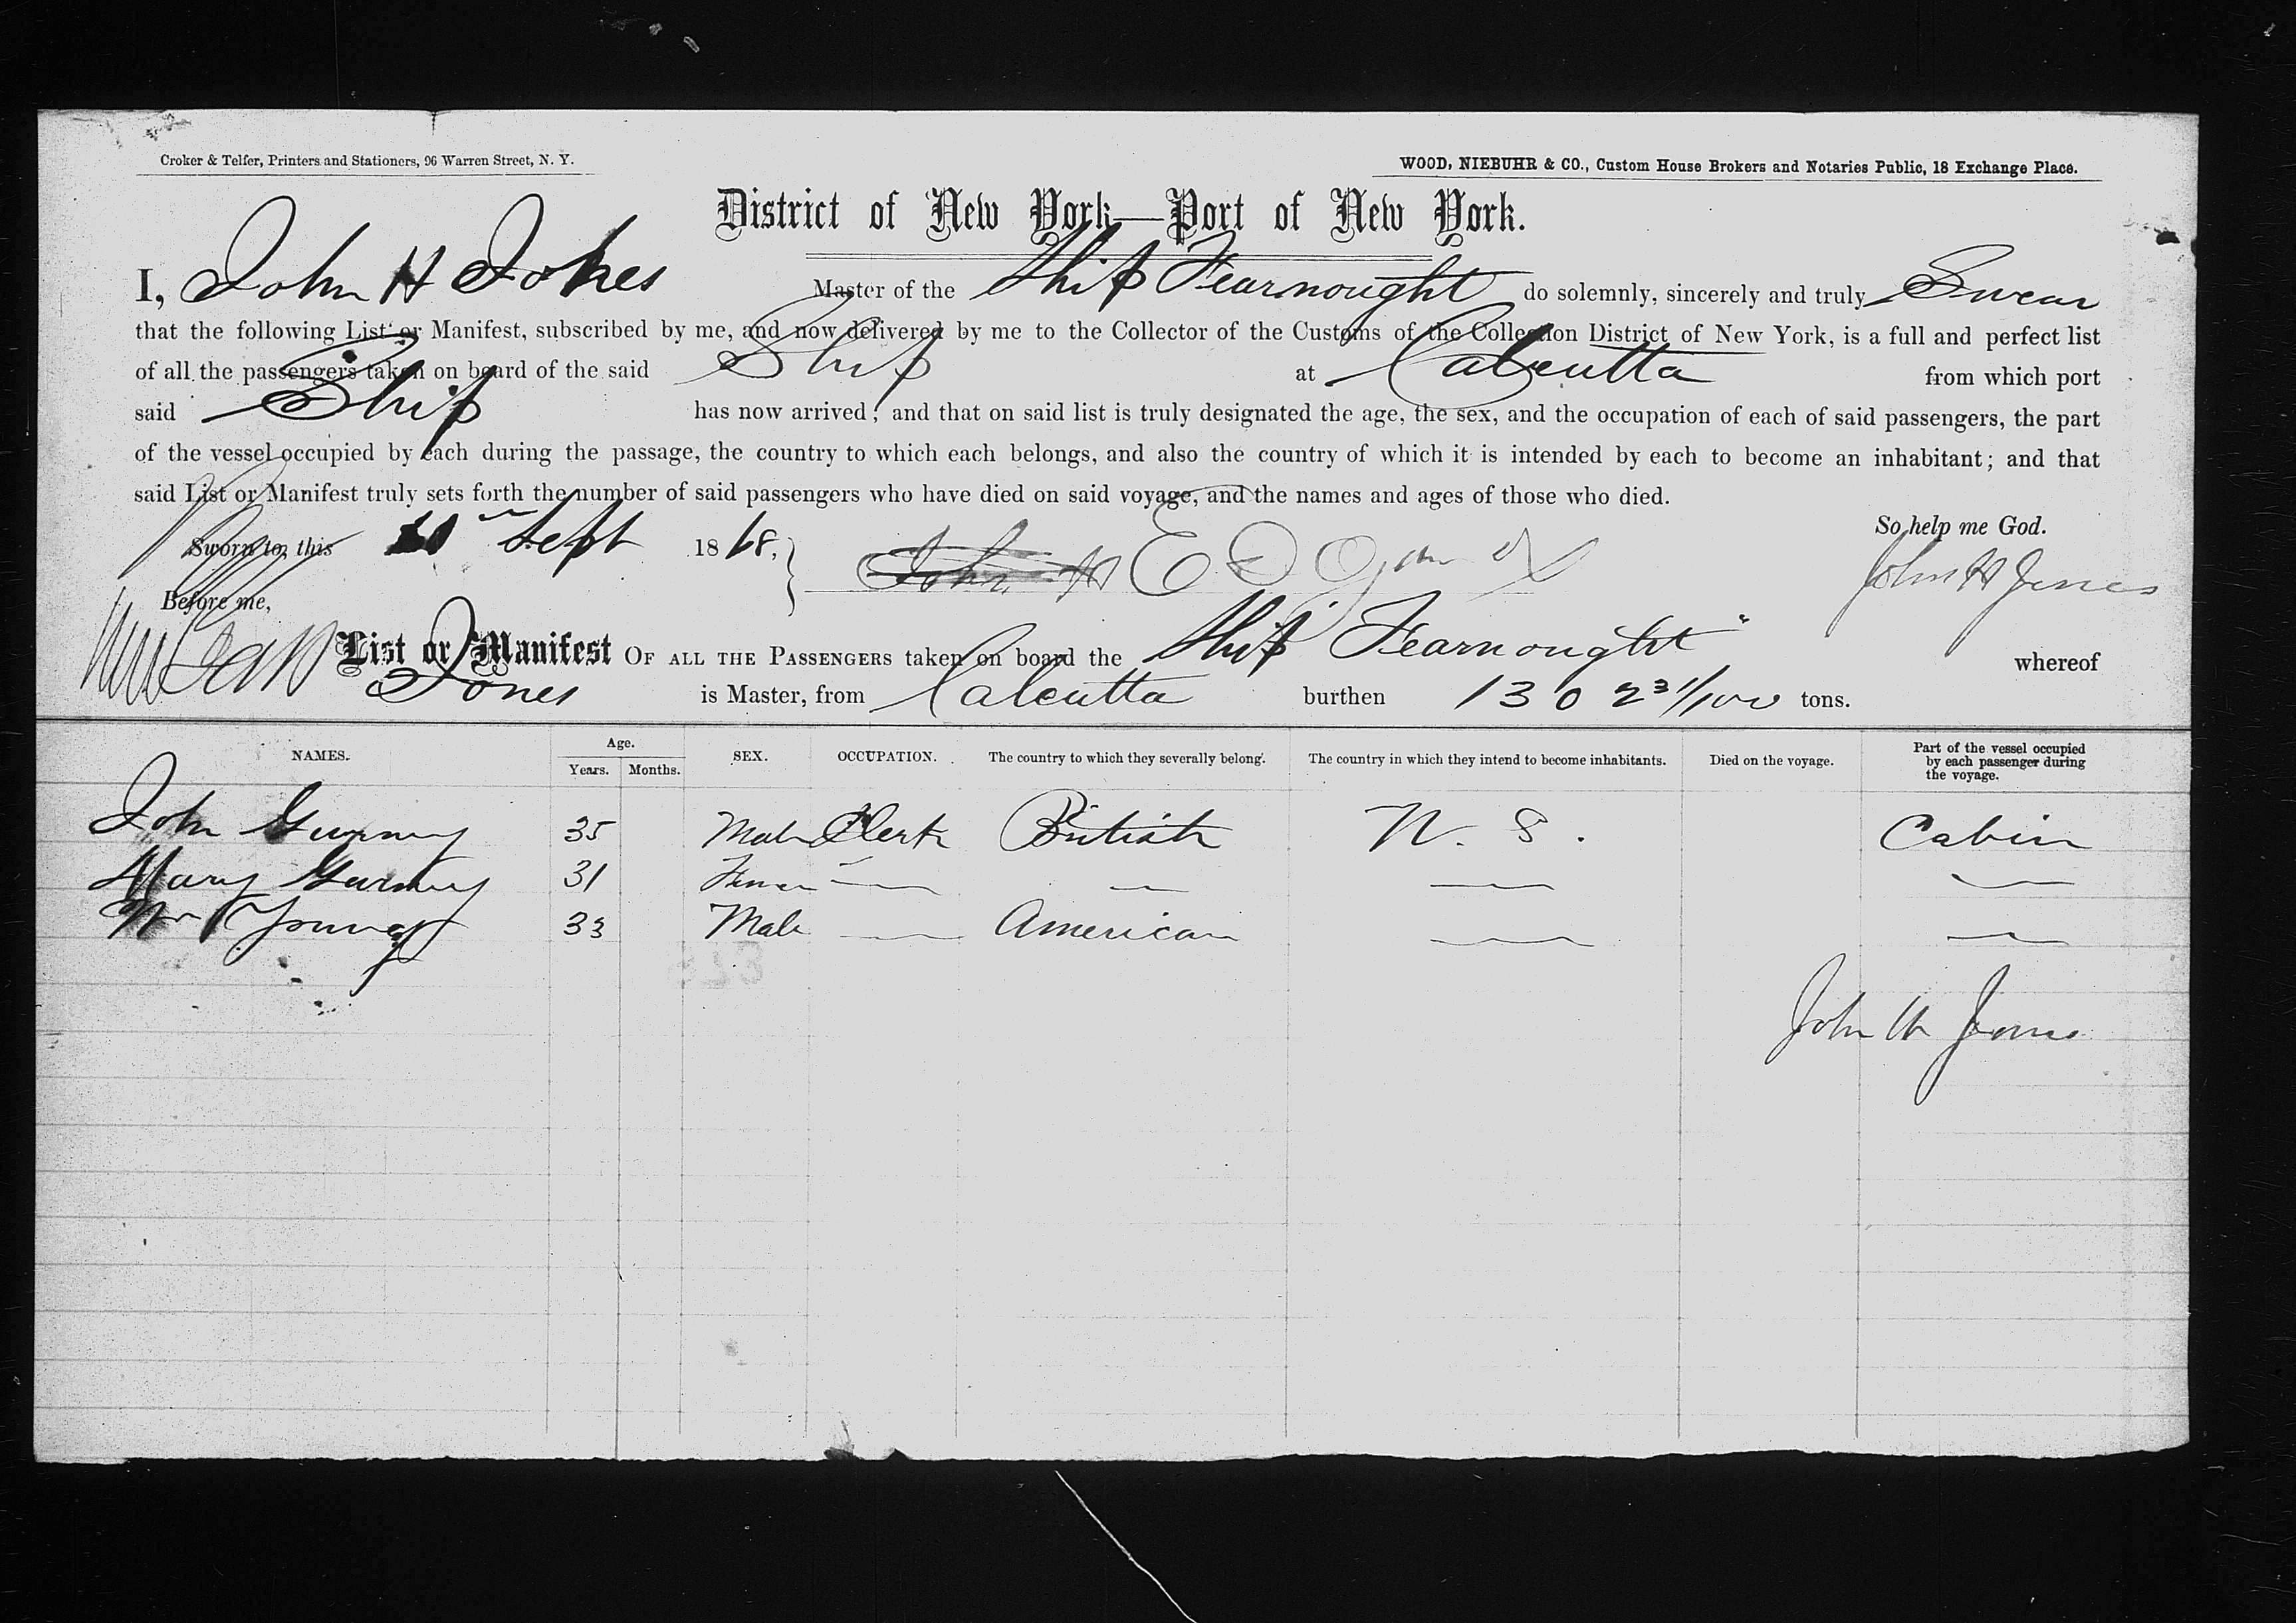 Croker & Telfer, Printers and Stationers, 96 Warren Street, N. Y.
WOOD, NIEBUHR & CO., Custom House Brokers and Notaries Public, 18 Exchange Place.
District of New York—Port of New York.
I, John H Jones Master of the Ship Fearnought do solemnly, sincerely and truly Swear
that the following List or Manifest, subscribed by me, and now delivered by me to the Collector of the Customs of the Collection District of New York, is a full and perfect list
of all the passengers taken on board of the said Ship at Calcutta from which port
said Ship has now arrived; and that on said list is truly designated the age, the sex, and the occupation of each of said passengers, the part
of the vessel occupied by each during the passage, the country to which each belongs, and also the country of which it is intended by each to become an inhabitant; and that
said List or Manifest truly sets forth the number of said passengers who have died on said voyage, and the names and ages of those who died.
So help me God.
Sworn to, this Sept 1868. John H
John H Jones
Before me,
List or Manifest OF ALL THE PASSENGERS taken on board the Ship Fearnought" whereof
Jones is Master, from Calcutta burthen 1302 31/100 tons.
NAMES. Age. Years. Months. SEX. OCCUPATION. The country to which they severally belong. The country in which they intend to become inhabitants. Died on the voyage. Part of the vessel occupied by each passenger during the voyage.
John Gurney 35 Male Clerk British U. S. Cabin
Mary Gurney 31 — — — —
Wm Young 33 Male — American — —
John H Jones